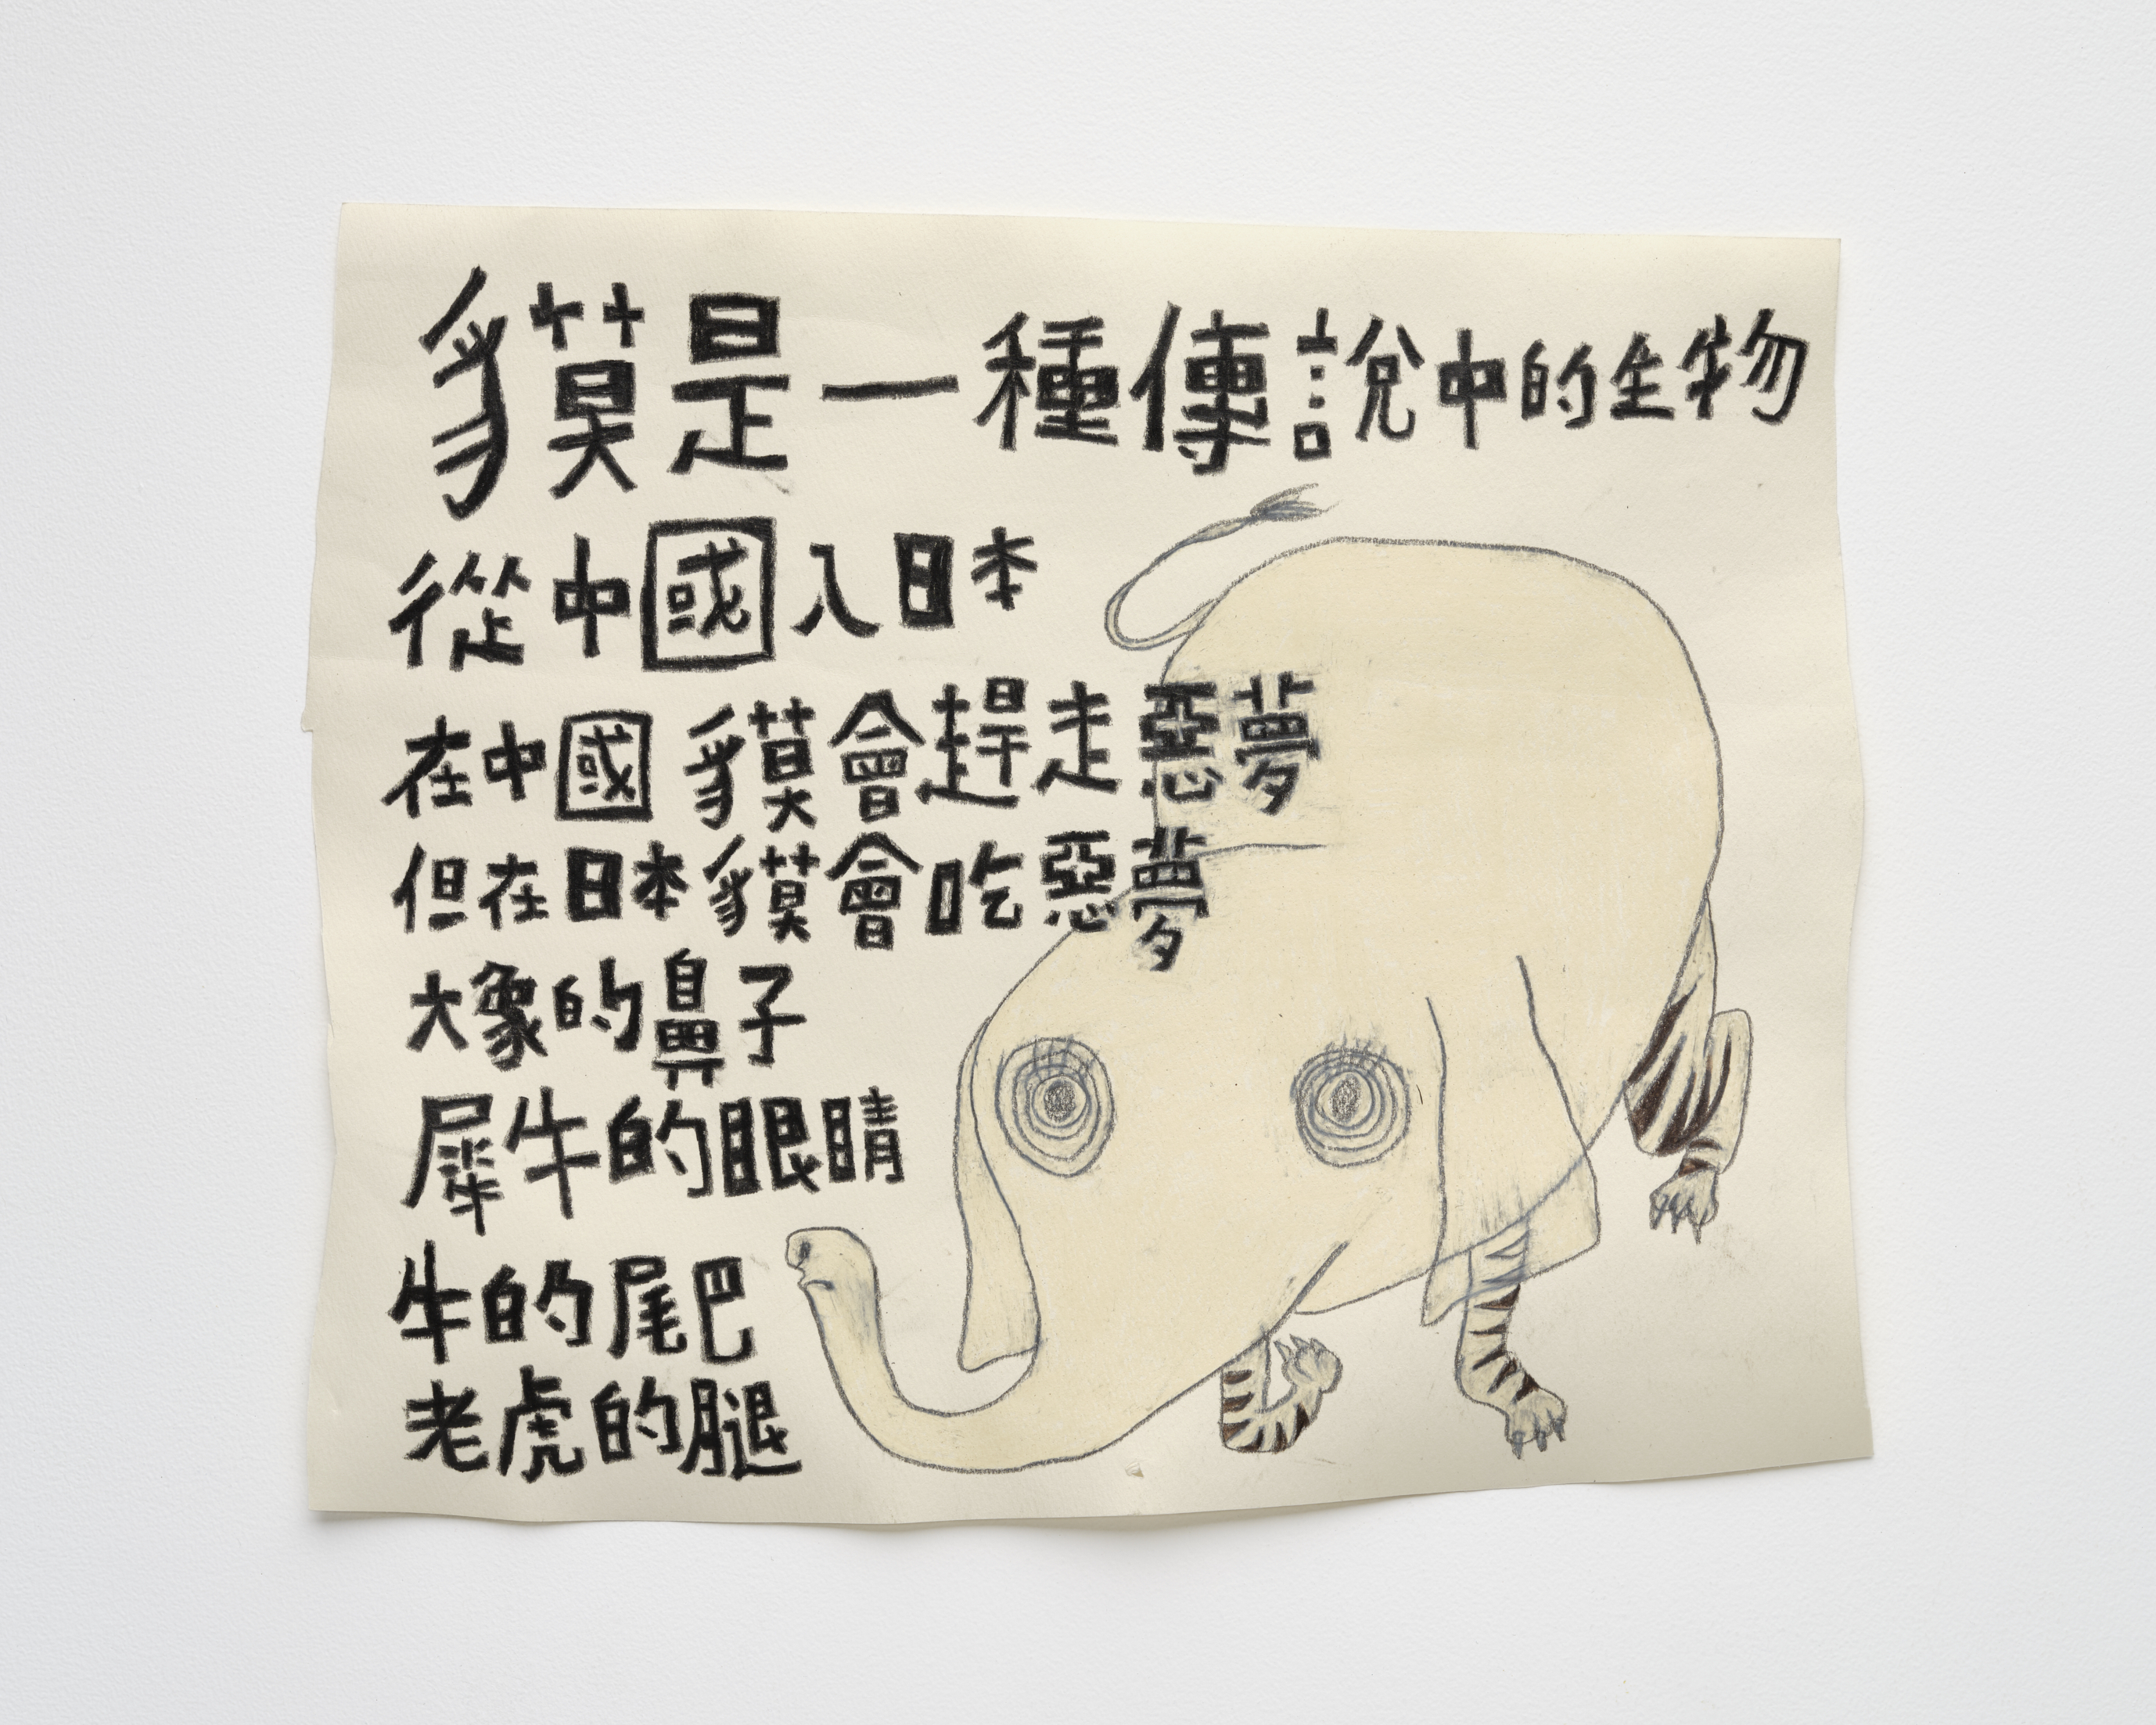 貘是一種傳說中的生物
從中國入日本
在中國 貘會趕走惡夢
但在日本貘會吃惡夢
大象的鼻子
犀牛的眼睛
牛的尾巴
老虎的腿